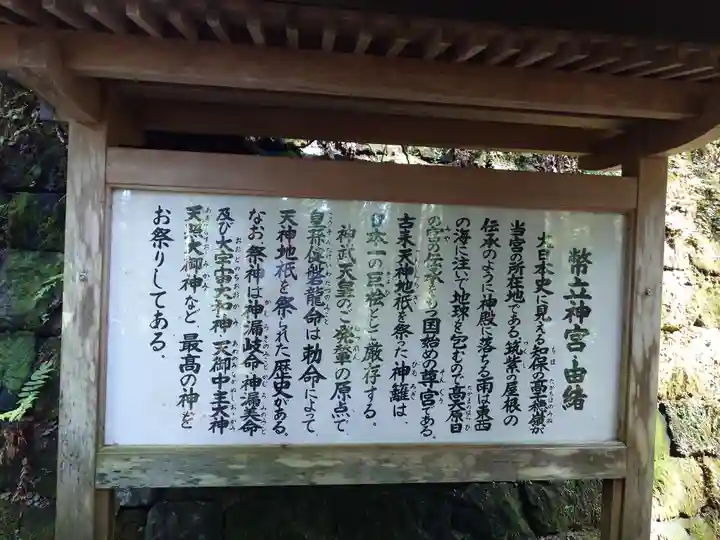 幣立神宮・由緒
大日本史に見える知保の高千穂嶺が
当宮の所在地である。筑紫の屋根の
伝承のように神殿に落ちる雨は東西
の海に注いで地球を包むので高天原日
の宮の伝承をもつ国始めの尊宮である。
古来天神地祇を祭った神籬は、
日本一の巨桧として厳存する。
神武天皇のご発輦の原点で
皇孫健磐龍命は勅命によって、
天神地祇を祭られた歴史がある。
なお祭神は神漏岐命・神漏美命
及び大宇宙大和神・天御中主大神
天照大御神など、最高の神を
お祭りしてある。